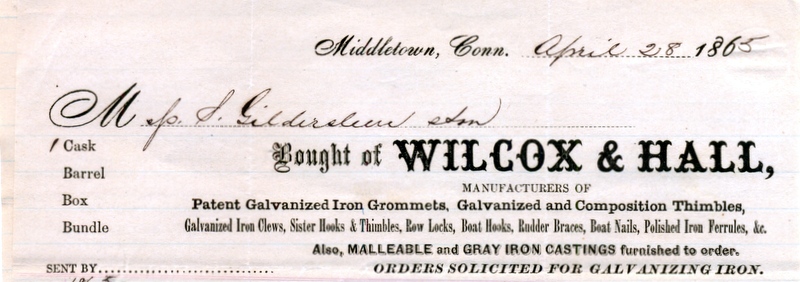 Middletown, Conn. April 28 1865
Mess. S. Gildersleeve & Son
1 Cask
Bought of WILCOX & HALL,
Barrel
MANUFACTURERS OF
Box
Patent Galvanized Iron Grommets, Galvanized and Composition Thimbles,
Bundle
Galvanized Iron Clews, Sister Hooks & Thimbles, Row Locks, Boat Hooks, Rudder Braces, Boat Nails, Polished Iron Ferrules, &c.
Also, MALLEABLE and GRAY IRON CASTINGS furnished to order.
SENT BY
ORDERS SOLICITED FOR GALVANIZING IRON.